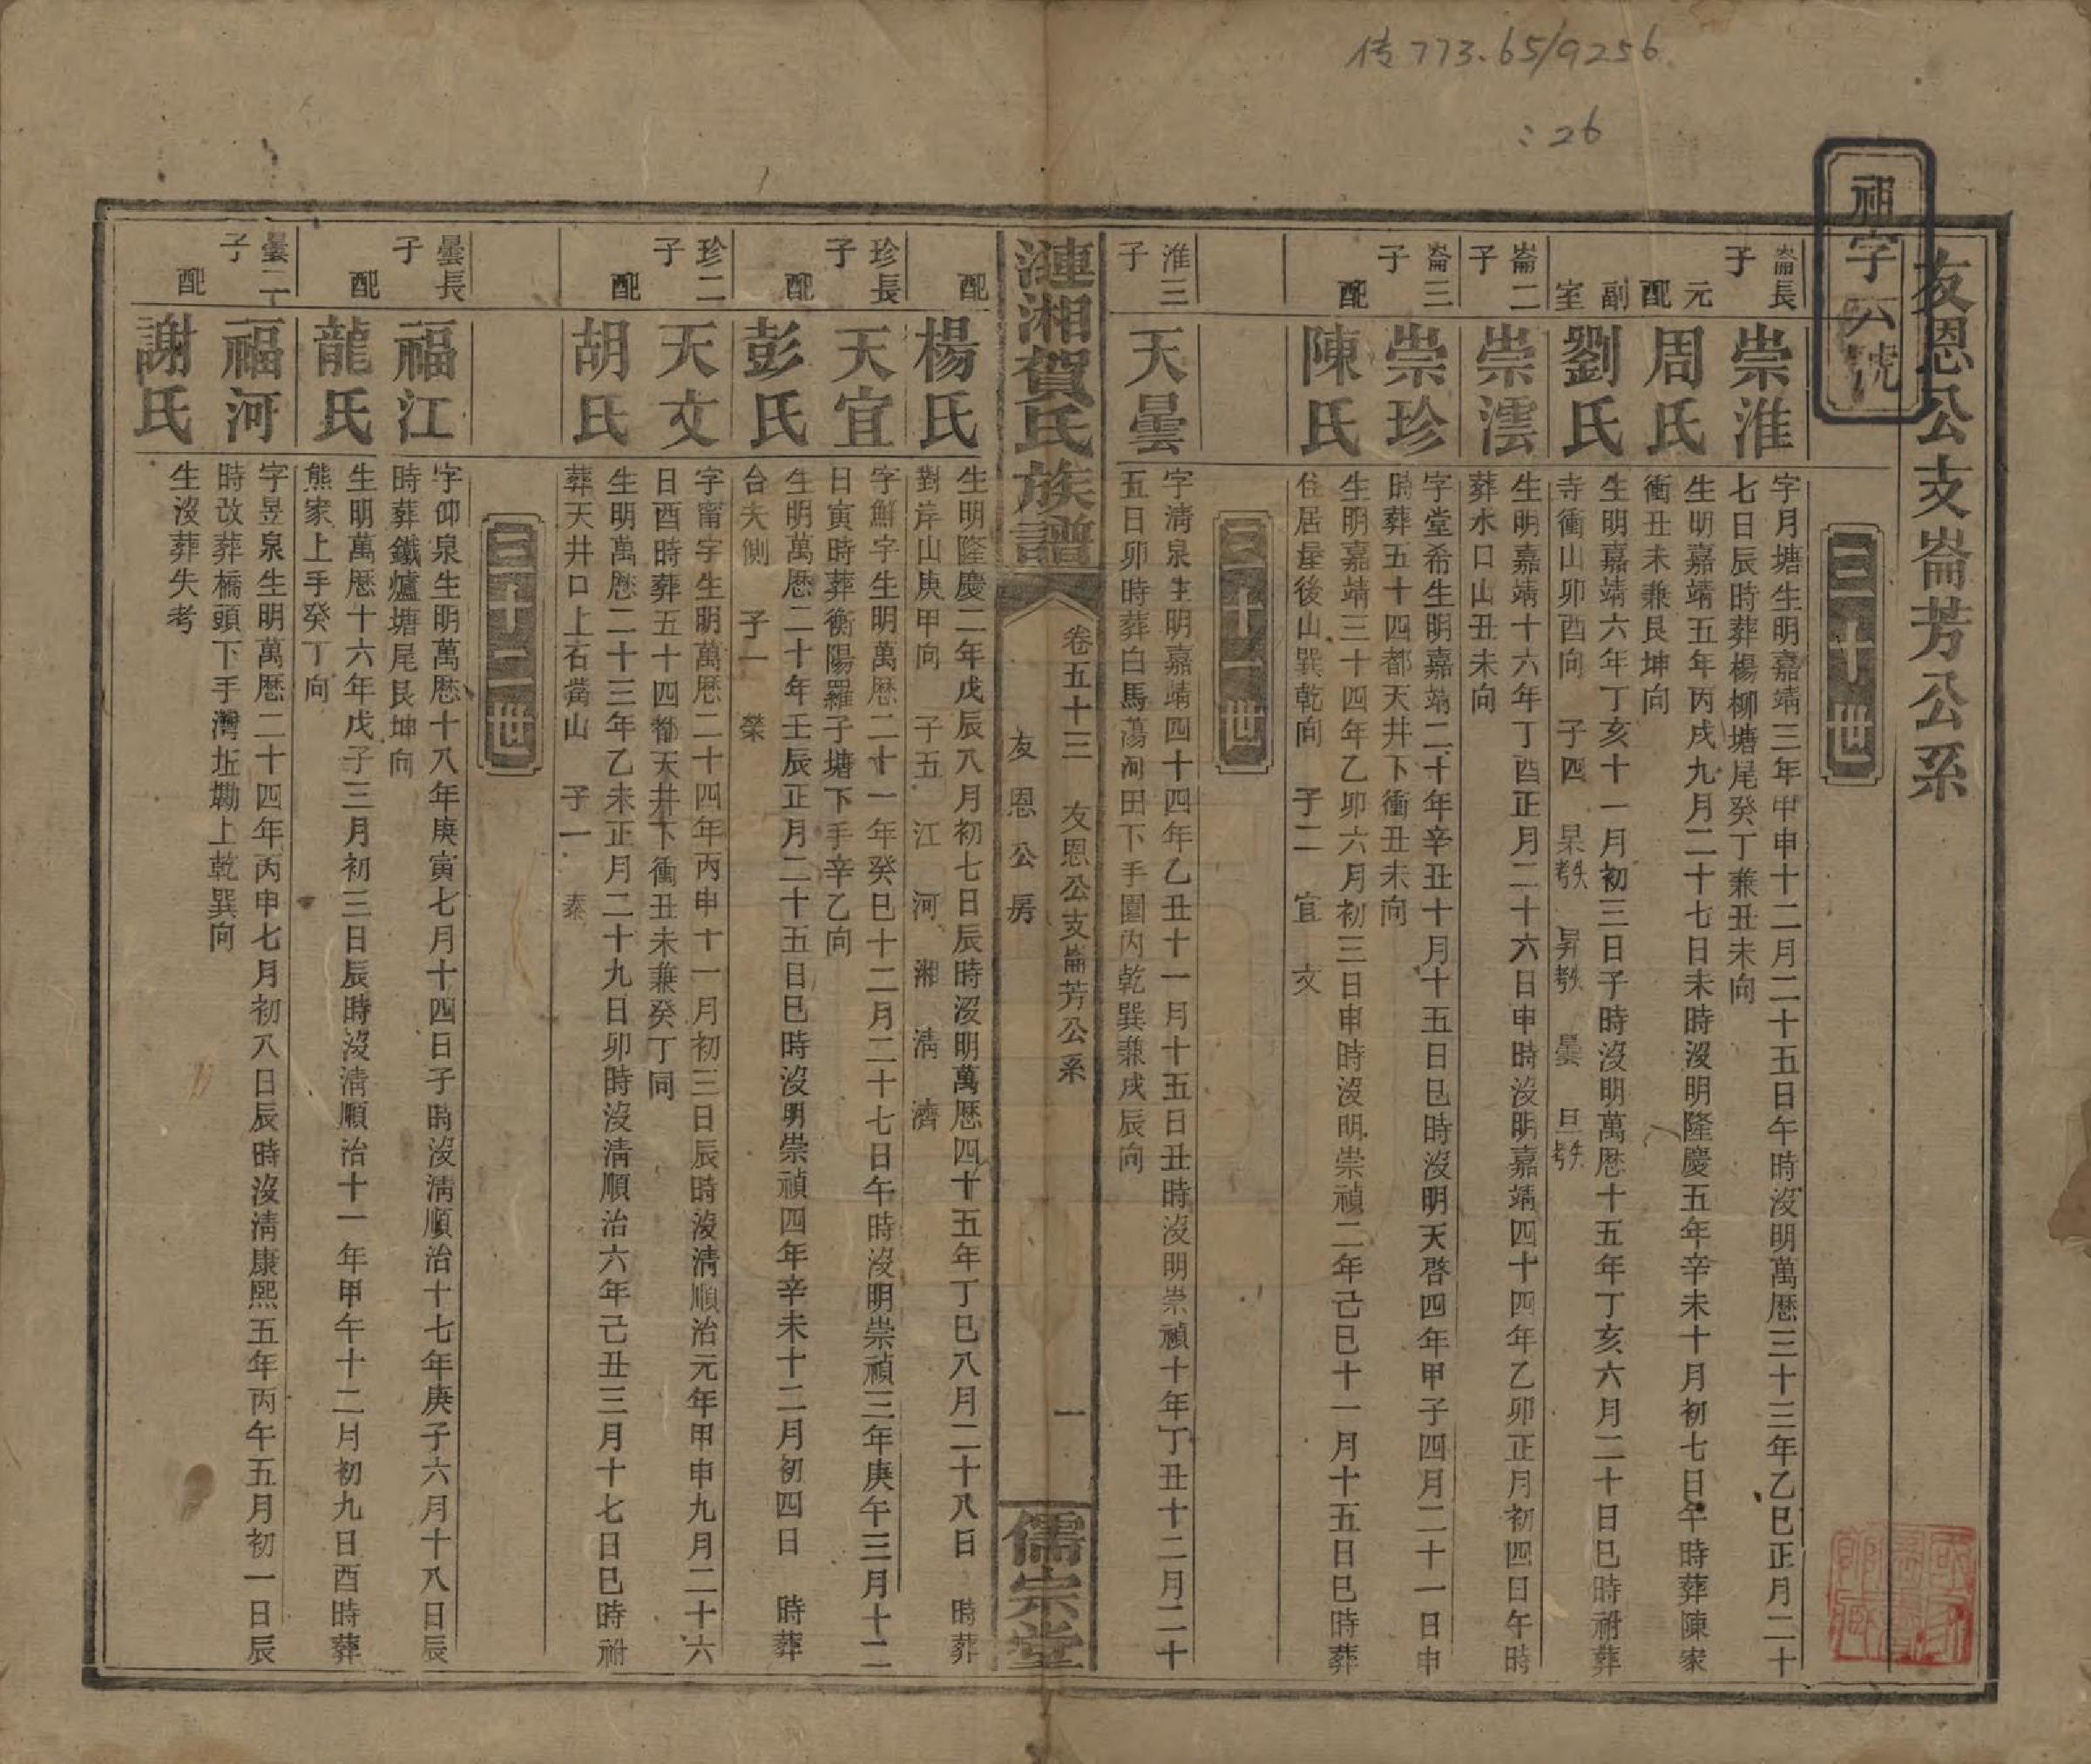 传773.65/9256
:26
祖字六號
友恩公支崙芳公系
三十世
崙長子
崇淮
字月塘生明嘉靖三年甲申十二月二十五日午時沒明萬厯三十三年乙巳正月二十
七日辰時葬楊柳塘尾癸丁兼丑未向
元配
周氏
生明嘉靖五年丙戌九月二十七日未時沒明隆慶五年辛未十月初七日午時葬陳家
衝丑未兼艮坤向
副室
劉氏
生明嘉靖六年丁亥十一月初三日子時沒明萬厯十五年丁亥六月二十日巳時祔葬
寺衝山卯酉向 子四 杲失考 昇失考 曇 旦失考
崙二子
崇澐
生明嘉靖十六年丁酉正月二十六日申時沒明嘉靖四十四年乙卯正月初四日午時
葬水口山丑未向
崙三子
崇珍
字堂希生明嘉靖二十年辛丑十月十五日巳時沒明天啓四年甲子四月二十一日申
時葬五十四都天井下衝丑未向
配
陳氏
生明嘉靖三十四年乙卯六月初三日申時沒明崇禎二年己巳十一月十五日巳時葬
住居屋後山巽乾向 子二 宜 文
三十一世
淮三子
天曇
字清泉生明嘉靖四十四年乙丑十一月十五日丑時沒明崇禎十年丁丑十二月二十
五日卯時葬白馬蕩洞田下手園內乾巽兼戌辰向
漣湘賀氏族譜
卷五十三 友恩公支崙芳公系
友恩公房
一
儒宗堂
配
楊氏
生明隆慶二年戊辰八月初七日辰時沒明萬厯四十五年丁巳八月二十八日 時葬
對岸山庚甲向 子五 江 河 湘 清 濟
珍長子
天宜
字鮮字生明萬厯二十一年癸巳十二月二十七日午時沒明崇禎三年庚午三月十二
日寅時葬衡陽羅子塘下手辛乙向
配
彭氏
生明萬厯二十年壬辰正月二十五日巳時沒明崇禎四年辛未十二月初四日 時葬
台夫側 子一 榮
珍二子
天文
字甯字生明萬厯二十四年丙申十一月初三日辰時沒清順治元年甲申九月二十六
日酉時葬五十四都天井下衝丑未兼癸丁同
配
胡氏
生明萬厯二十三年乙未正月二十九日卯時沒清順治六年己丑三月十七日巳時祔
葬天井口上石嵩山 子一 泰
三十二世
曇長子
福江
字仰泉生明萬厯十八年庚寅七月十四日子時沒清順治十七年庚子六月十八日辰
時葬鐵爐塘尾艮坤向
配
龍氏
生明萬厯十六年戊子三月初三日辰時沒清順治十一年甲午十二月初九日酉時葬
熊家上手癸丁向
曇二子
福河
字昱泉生明萬厯二十四年丙申七月初八日辰時沒清康熙五年丙午五月初一日辰
時改葬橋頭下手灣坵墈上乾巽向
配
謝氏
生沒葬失考